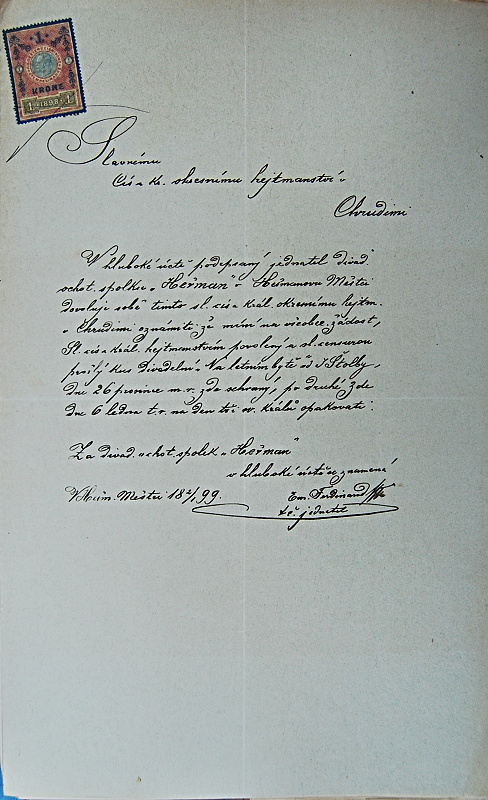 1
KRONE
1 1898 1
Slavnému
Cís. a kr. okresnímu hejtmanství v
Chrudimi
V hluboké úctě podepsaný jednatel divad.
ochot. spolku „Heřman" v Heřmanovu Městci
dovoluje sobě tímto sl. cís. a král. okresnímu hejtm.
v Chrudimi oznámiti, že míní na všeobec. žádost,
Sl. cís. a král. hejtmanstvím povolený a sl. censurou
prošlý kus Divadelní „Na letním bytě" od J. Štolby,
dne 26 prosince m. r. zde sehraný, po druhé zde
dne 6 ledna t. r. na den tří sv. králů opakovati.
Za divad. ochot. spolek „Heřman"
v hluboké úctě se znamená
V Heřm. Městci 18 2/1 99.
Em. Ferdinand
t. č. jednatel